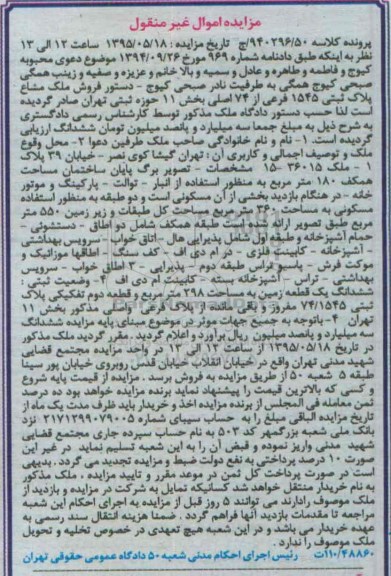 مزایده اموال غیر منقول
پرونده کلاسه ۹۴۰۲۹۶/۵۰/ج تاریخ مزایده : ۱۳۹۵/۰۵/۱۸ ساعت ۱۲ الی ۱۳
نظر به اینکه طبق دادنامه شماره ۹۶۹ مورخ ۱۳۹۴/۰۹/۲۶ موضوع دعوی محبوبه
کیوج و فاطمه و طاهره و عادل و سمیه و بالا خانم و عزیزه و صفیه و زینب همگی
صبحی کیوج همگی به طرفیت نادر صبحی کیوج - دستور فروش ملک مشاع
پلاک ثبتی ۱۵۴۵ فرعی از ۷۴ اصلی بخش ۱۱ حوزه ثبتی تهران صادر گردیده
است لذا حسب دستور دادگاه ملک مذکور توسط کارشناس رسمی دادگستری
به شرح ذیل به مبلغ جمعا سه میلیارد و پانصد میلیون تومان ششدانگ ارزیابی
گردیده است. ۱- نام و نام خانوادگی صاحب ملک طرفین دعوا ۲- محل وقوع
ملک و توصیف اجمالی و کاربری آن : تهران گیشا کوی نصر - خیابان ۳۹ پلاک
۱ - ملک ۳۶۰۱۵ -۱۵ مشخصات - تصویر برگ پایان ساختمان مساحت
همکف ۱۸۰ متر مربع به منظور استفاده از انبار - توالت - پارکینگ و موتور
خانه - در هنگام بازدید بخشی از آن مسکونی است و دو طبقه به منظور استفاده
مسکونی به مساحت ۳۴۰ متر مربع مساحت کل طبقات و زیر زمین ۵۵۰ متر
مربع طبق تصویر ارائه شده است طبقه همکف شامل دو اطاق - دستشوئی -
حمام آشپزخانه و طبقه اول شامل پذیرایی هال - اتاق خواب - سرویس بهداشتی
- آشپزخانه - کابینت فلزی - در ام دی اف - کف سنگ - اطاقها موزائیک و
موکت فرش - پاسیو تراس طبقه دوم - پذیرایی - ۳ اطاق خواب - سرویس
بهداشتی - تراس - آشپزخانه بسته - کابینت ام دی اف ۴- وضعیت ثبتی :
ششدانگ یک قطعه زمین به مساحت ۲۹۸ متر مربع و قطعه دوم تفکیکی پلاک
ثبتی ۷۴/۱۵۴۵ مفروز و باقی مانده از پلاک فرعی و اصلی مذکور بخش ۱۱
تهران ۴- باتوجه به جمیع جهات موثر در موضوع مبنای پایه مزایده ششدانگ
سه میلیارد و پانصد میلیون ریال برآورد و اعلام گردید . مقرر گردید ملک مذکور
در تاریخ ۱۳۹۵/۰۵/۱۸ از ساعت ۱۲ الی ۱۳ در واحد مزایده مجتمع قضایی
شهید مدنی تهران واقع در خیابان انقلاب خیابان قدس روبروی خیابان پور سینا
طبقه ۵ شعبه ۵۰ از طریق مزایده به فروش برسد . مزایده از قیمت پایه شروع
و کسی که بالاترین قیمت را پیشنهاد نماید برنده مزایده خواهد بود ده درصد
ثمن معامله فی المجلس از برنده مزایده اخذ و خریدار باید ظرف مدت یک ماه از
تاریخ مزایده الباقی مبلغ را به حساب سیبای شماره ۲۱۷۱۲۹۹۰۷۹۰۰۵ نزد
بانک ملی شعبه بزرگمهر کد ۵۰۳ به نام حساب سپرده جاری مجتمع قضایی
شهید مدنی واریز نموده و قبض آن را به این شعبه تسلیم نماید در غیر این
صورت ۱۰ درصد پرداختی به نفع دولت ضبط و مزایده تجدید می گردد . بدیهی
است در صورت پرداخت کل ثمن در موعد مقرر و تایید مزایده ، ملک مذکور
به نام خریدار منتقل خواهد شد کسانیکه تمایل به شرکت در مزایده و بازدید از
ملک موصوف رادارند می توانند ۵ روز قبل از مزایده به اجرای احکام این شعبه
مراجعه تا مقدمات بازدید آنها فراهم گردد . ضمنا هزینه انتقال سند رسمی به
عهده خریدار می باشد و در این شعبه هیچ تعهدی در خصوص تخلیه و تحویل
ملک موصوف را ندارد.
۱۱۰/۴۸۸۶۰ت رئیس اجرای احکام مدنی شعبه ۵۰ دادگاه عمومی حقوقی تهران